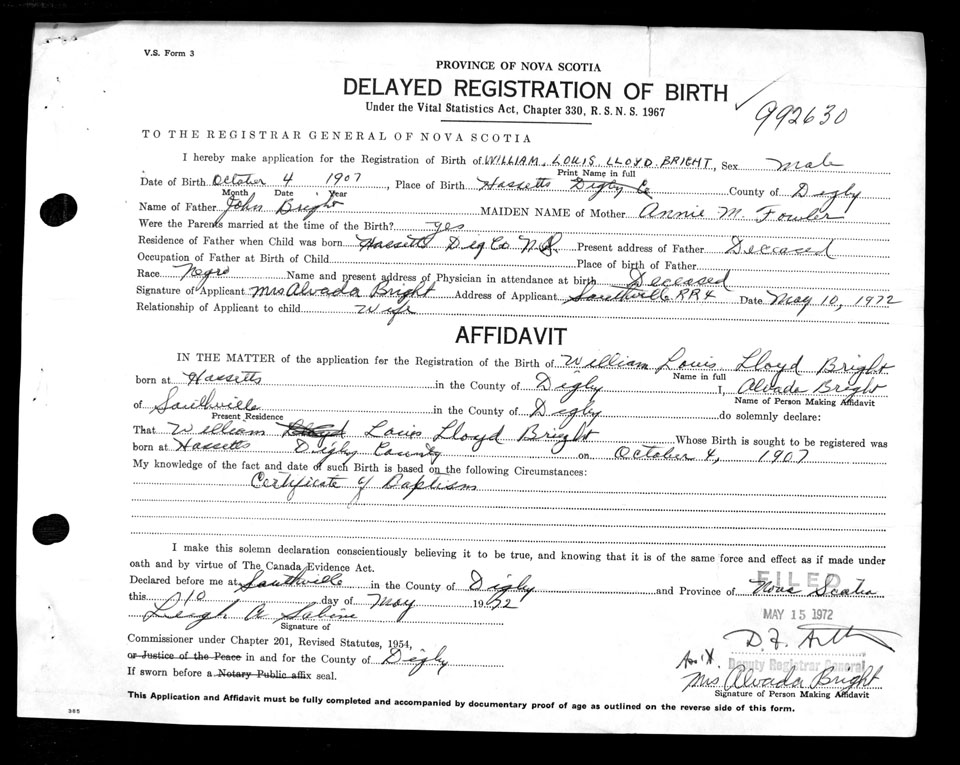 V.S. Form 3
PROVINCE OF NOVA SCOTIA
DELAYED REGISTRATION OF BIRTH
Under the Vital Statistics Act, Chapter 330, R.S.N.S. 1967
992630
TO THE REGISTRAR GENERAL OF NOVA SCOTIA
I hereby make application for the Registration of Birth of WILLIAM, LOUIS LLOYD BRIGHT, Sex Male
Print Name in full
Date of Birth October 4 1907, Place of Birth Hassetts Digby Co County of Digby
Month Date Year
Name of Father John Bright MAIDEN NAME of Mother Annie M. Fowler
Were the Parents married at the time of the Birth? yes
Residence of Father when Child was born Hassetts Dig Co N.S. Present address of Father Deceased
Occupation of Father at Birth of Child Place of birth of Father
Race Negro Name and present address of Physician in attendance at birth Deceased
Signature of Applicant Mrs Alvada Bright Address of Applicant Southville RR4 Date May 10, 1972
Relationship of Applicant to child Wife
AFFIDAVIT
IN THE MATTER of the application for the Registration of the Birth of William Louis Lloyd Bright
Name in full
born at Hassetts in the County of Digby I, Alvada Bright
Name of Person Making Affidavit
of Southville in the County of Digby do solemnly declare:
Present Residence
That William Lloyd Louis Lloyd Bright Whose Birth is sought to be registered was
born at Hassetts Digby County on October 4, 1907
My knowledge of the fact and date of such Birth is based on the following Circumstances:
Certificate of Baptism
I make this solemn declaration conscientiously believing it to be true, and knowing that it is of the same force and effect as if made under
oath and by virtue of The Canada Evidence Act.
Declared before me at Southville in the County of Digby and Province of Nova Scotia
FILED
this 10 day of May 1972
MAY 15 1972
Leigh A Sabine
Signature of
Commissioner under Chapter 201, Revised Statutes, 1954,
or Justice of the Peace in and for the County of Digby
D.F.
Deputy Registrar General
If sworn before a Notary Public affix seal.
Mrs Alvada Bright
Signature of Person Making Affidavit
This Application and Affidavit must be fully completed and accompanied by documentary proof of age as outlined on the reverse side of this form.
365